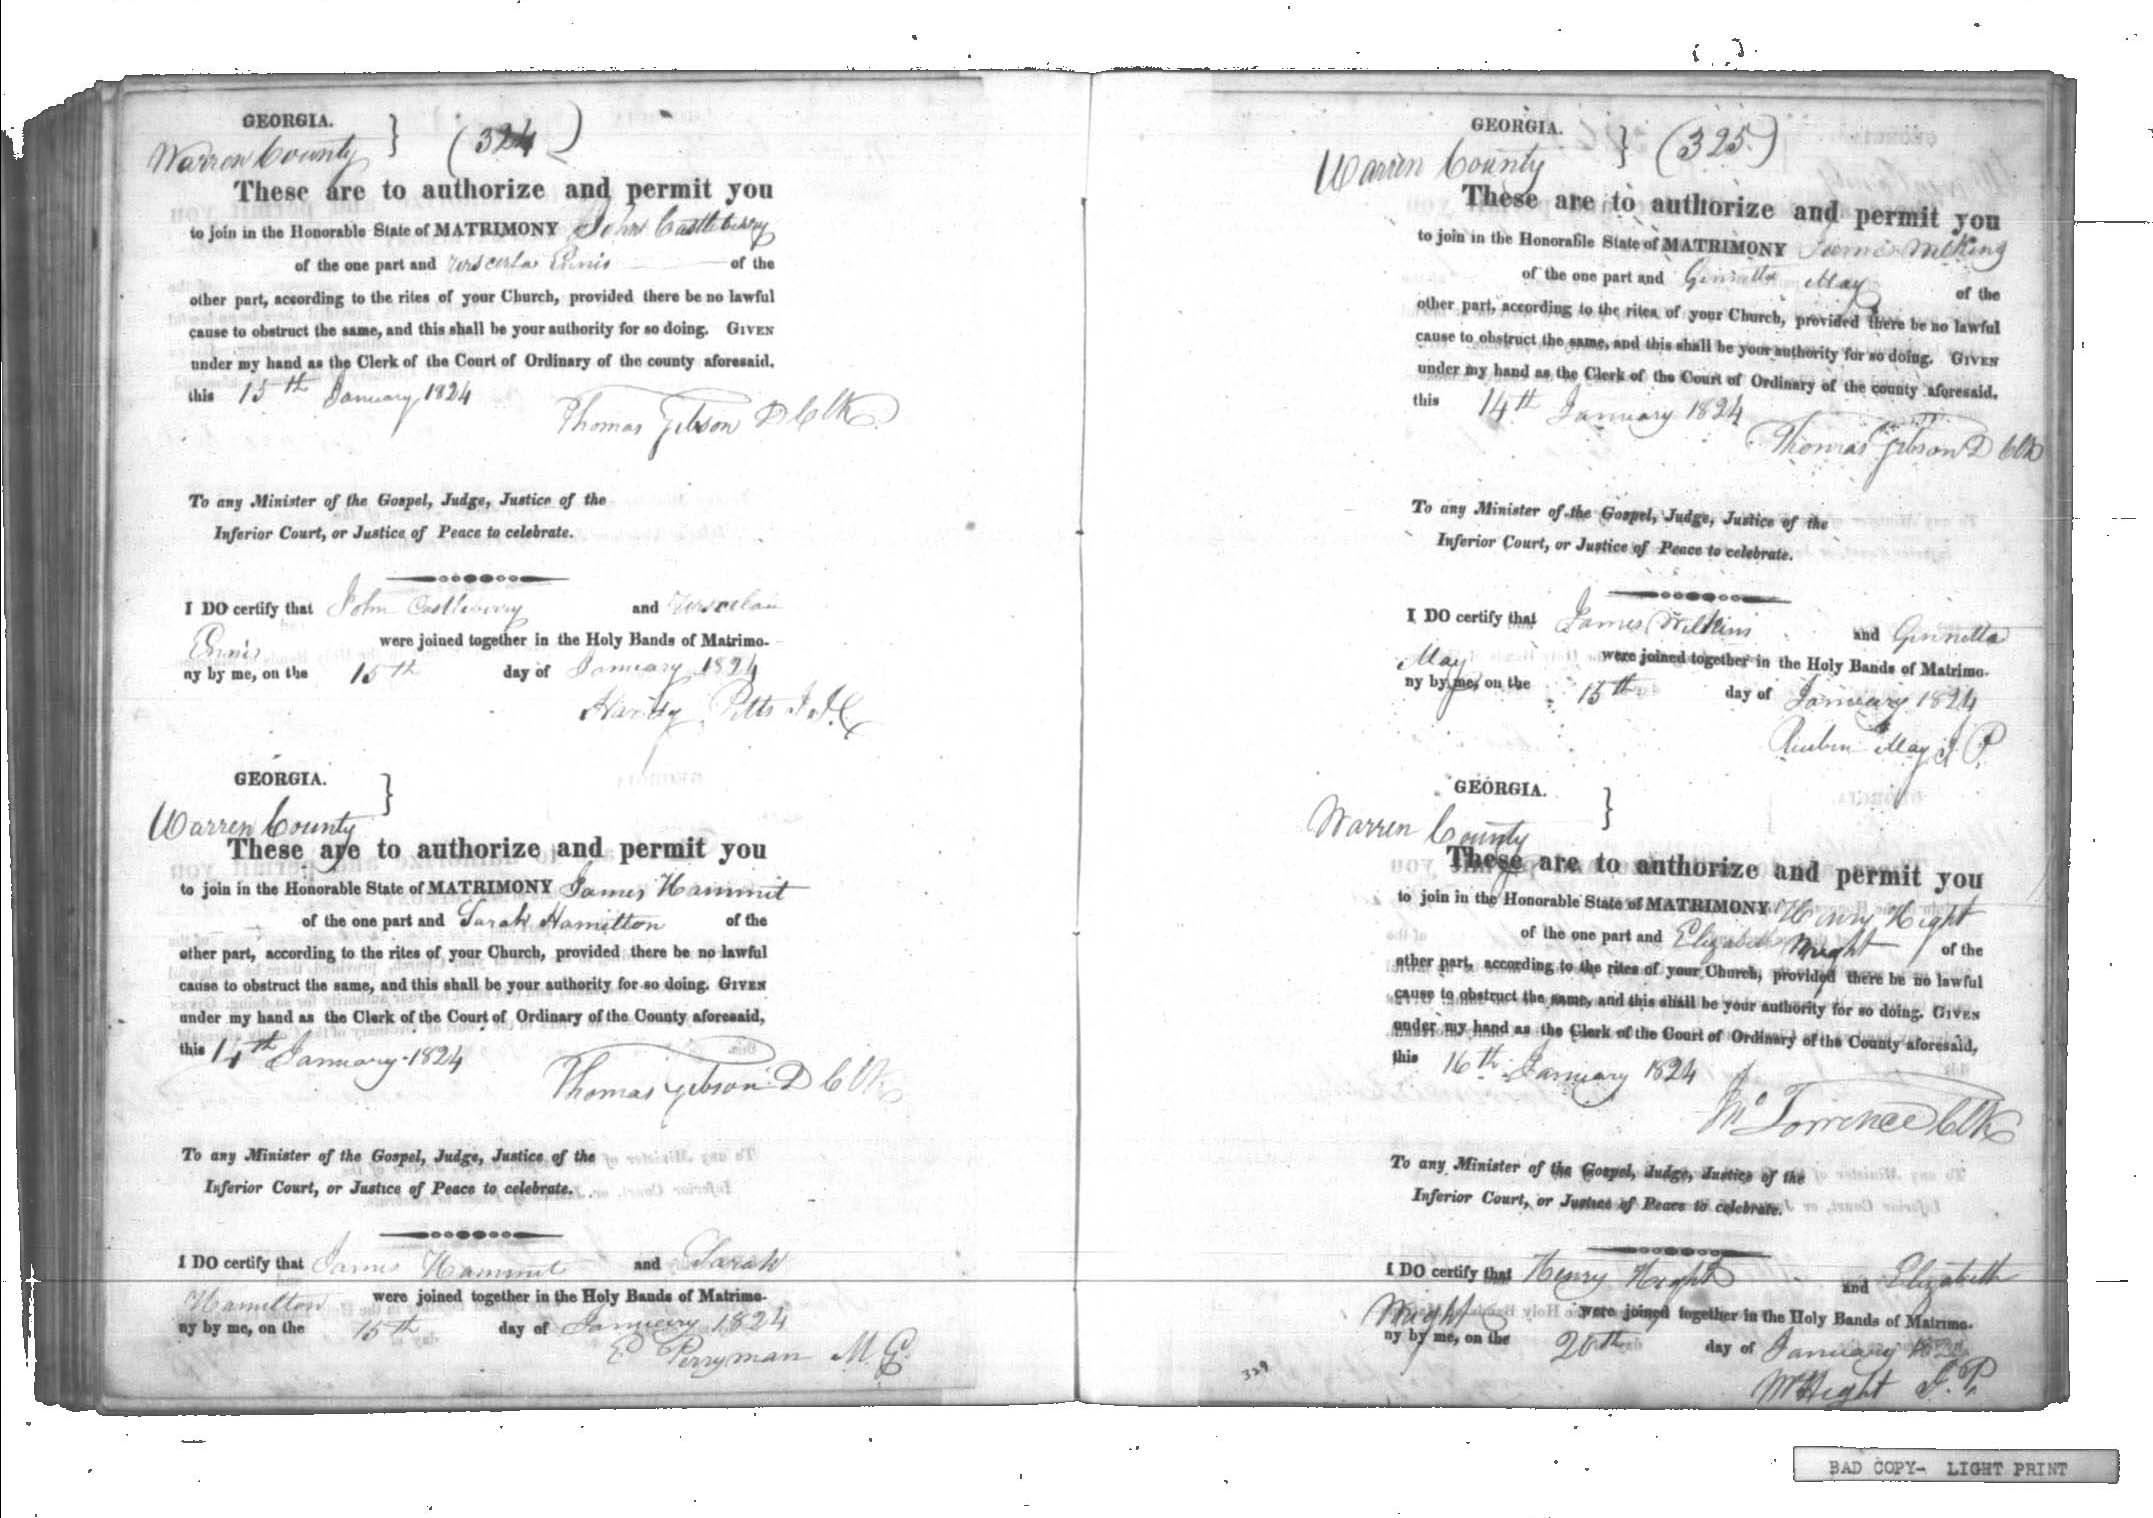 GEORGIA. }
Warren County (324)
These are to authorize and permit you
to join in the Honorable State of MATRIMONY John Castleberry
of the one part and Ennis of the
other part, according to the rites of your Church, provided there be no lawful
cause to obstruct the same, and this shall be your authority for so doing. GIVEN
under my hand as the Clerk of the Court of Ordinary of the county aforesaid,
this 15th January 1824
Thomas Gibson D Clk
To any Minister of the Gospel, Judge, Justice of the
Inferior Court, or Justice of Peace to celebrate.
I DO certify that John Castleberry and
Ennis were joined together in the Holy Bands of Matrimo-
ny by me, on the 15th day of January 1824
Hardy Pitts J I C
GEORGIA. }
Warren County
These are to authorize and permit you
to join in the Honorable State of MATRIMONY James Hammit
of the one part and Sarah Hamilton of the
other part, according to the rites of your Church, provided there be no lawful
cause to obstruct the same, and this shall be your authority for so doing. GIVEN
under my hand as the Clerk of the Court of Ordinary of the County aforesaid,
this 14th January 1824
Thomas Gibson D Clk
To any Minister of the Gospel, Judge, Justice of the
Inferior Court, or Justice of Peace to celebrate.
I DO certify that James Hammit and Sarah
Hamilton were joined together in the Holy Bands of Matrimo-
ny by me, on the 15th day of January 1824
E Perryman M.G.
GEORGIA. }
Warren County (325)
These are to authorize and permit you
to join in the Honorable State of MATRIMONY James
of the one part and Ginnetta May of the
other part, according to the rites of your Church, provided there be no lawful
cause to obstruct the same, and this shall be your authority for so doing. GIVEN
under my hand as the Clerk of the Court of Ordinary of the county aforesaid,
this 14th January 1824
Thomas Gibson D Clk
To any Minister of the Gospel, Judge, Justice of the
Inferior Court, or Justice of Peace to celebrate.
I DO certify that James Wilkins and Ginnetta
May were joined together in the Holy Bands of Matrimo-
ny by me, on the 15th day of January 1824
Reuben May J. P.
GEORGIA. }
Warren County
These are to authorize and permit you
to join in the Honorable State of MATRIMONY Henry Hight
of the one part and Elizabeth Wright of the
other part, according to the rites of your Church, provided there be no lawful
cause to obstruct the same, and this shall be your authority for so doing. GIVEN
under my hand as the Clerk of the Court of Ordinary of the County aforesaid,
this 16th January 1824
Torrence Clk
To any Minister of the Gospel, Judge, Justice of the
Inferior Court, or Justice of Peace to celebrate.
I DO certify that Henry Hight and Elizabeth
Wright were joined together in the Holy Bands of Matrimo-
ny by me, on the 20th day of January
Hight J. P.
329
BAD COPY- LIGHT PRINT